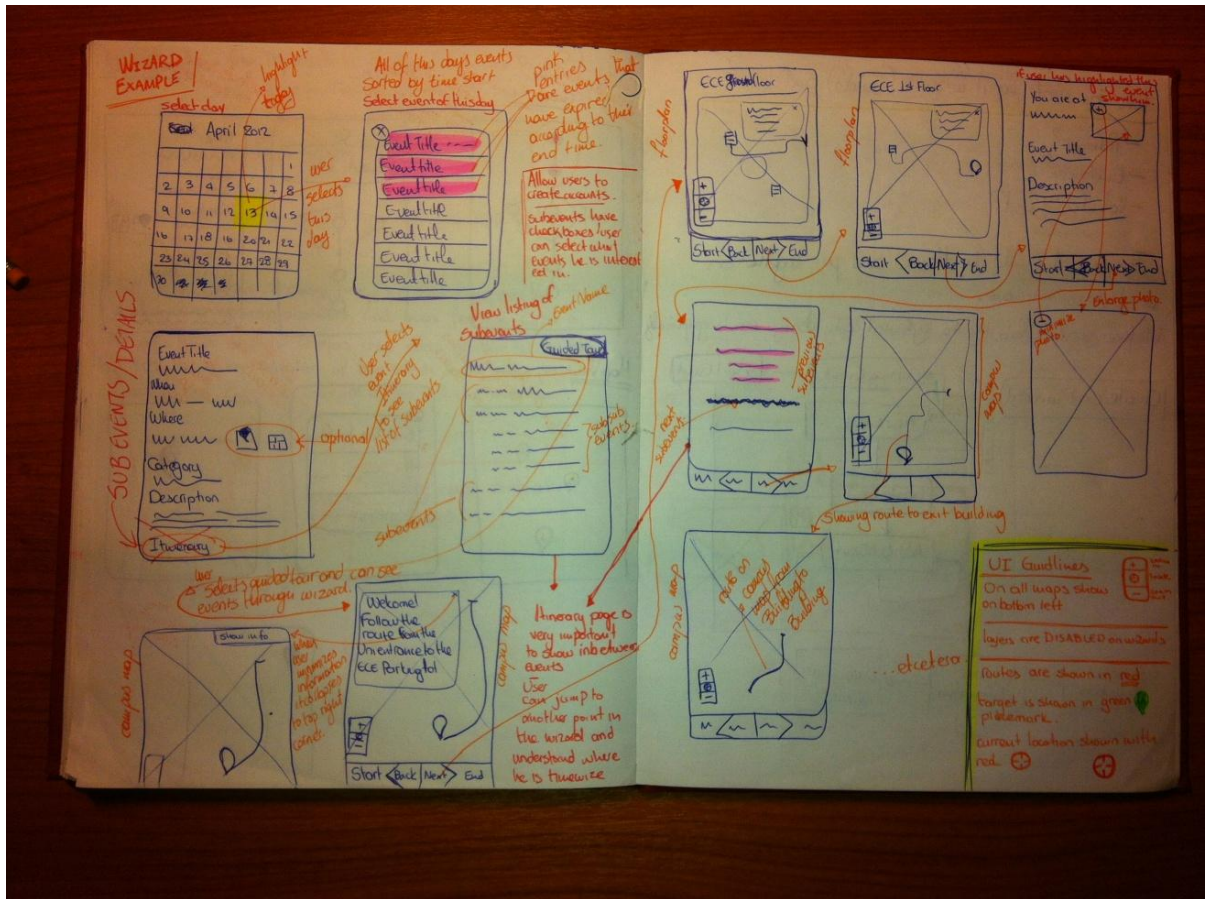 WIZARD
EXAMPLE
highlight
today
select day
April 2012
1
2 3 4 5 6 7 8
9 10 11 12 13 14 15
16 17 18 19 20 21 22
23 24 25 26 27 28 29
30
user
selects
this
day
All of this days events
Sorted by time start
Select event of this day
Event Title
Event title
Event title
Event title
Event title
Event title
Event title
pink
entries
are events that
have expired
according to their
end time.
Allow users to
create accounts.
subevents have
checkboxes user
can select what
Events he is interest
ed in.
SUB EVENTS/DETAILS
Event Title
When
Where
Category
Description
Itinerary
optional
User selects
event
itinerary
to see
list of subevents
View listing of
subevents
Event Name
Guided Tour
subsub
events
subevents
user
Selects guided tour and can see
events through wizard.
campus map
show info
when
user
minimizes
information
it collapses
to top right
corner.
Welcome!
Follow the
route from the
Uni entrance to the
ECE Building
Start Back Next End
campus map
Itinerary page is
very important
to show inbetween
events
User
can jump to
another point in
the wizard and
understand where
he is timewize
floorplan
ECE Ground Floor
+
-
Start Back Next End
floorplan
ECE 1st Floor
+
-
Start Back Next End
if user has highlighted this
event
show him.
You are at
+
Event Title
Description
Start Back Next End
Enlarge photo.
minimize
photo.
previous
subevents
next
subevent
campus
map
showing route to exit building
campus map
route on
campus
map from
Building to
Building.
...etcetera
UI Guidlines
On all maps show
on bottom left
+
-
layers are DISABLED on wizards
routes are shown in red
target is shown in green
placemark.
current location shown with
red.